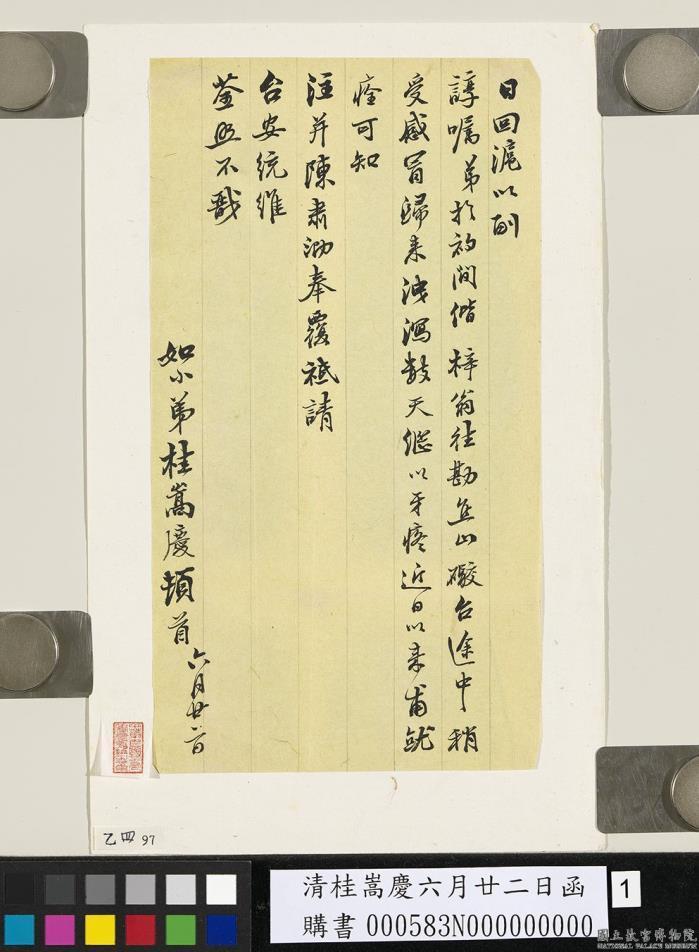 日回滬以副
諄囑弟於初間偕梓翁往勘焦山礮台途中稍
受感冒歸來洩瀉數天繼以牙疼近日以來甫就
痊可知
注并陳肅泐奉覆祗請
台安統維
荃照不戩
如小弟桂嵩慶頓首六月廿二日
乙四 97
清桂嵩慶六月廿二日函
購書 000583N000000000
1
國立故宮博物院
NATIONAL PALACE MUSEUM